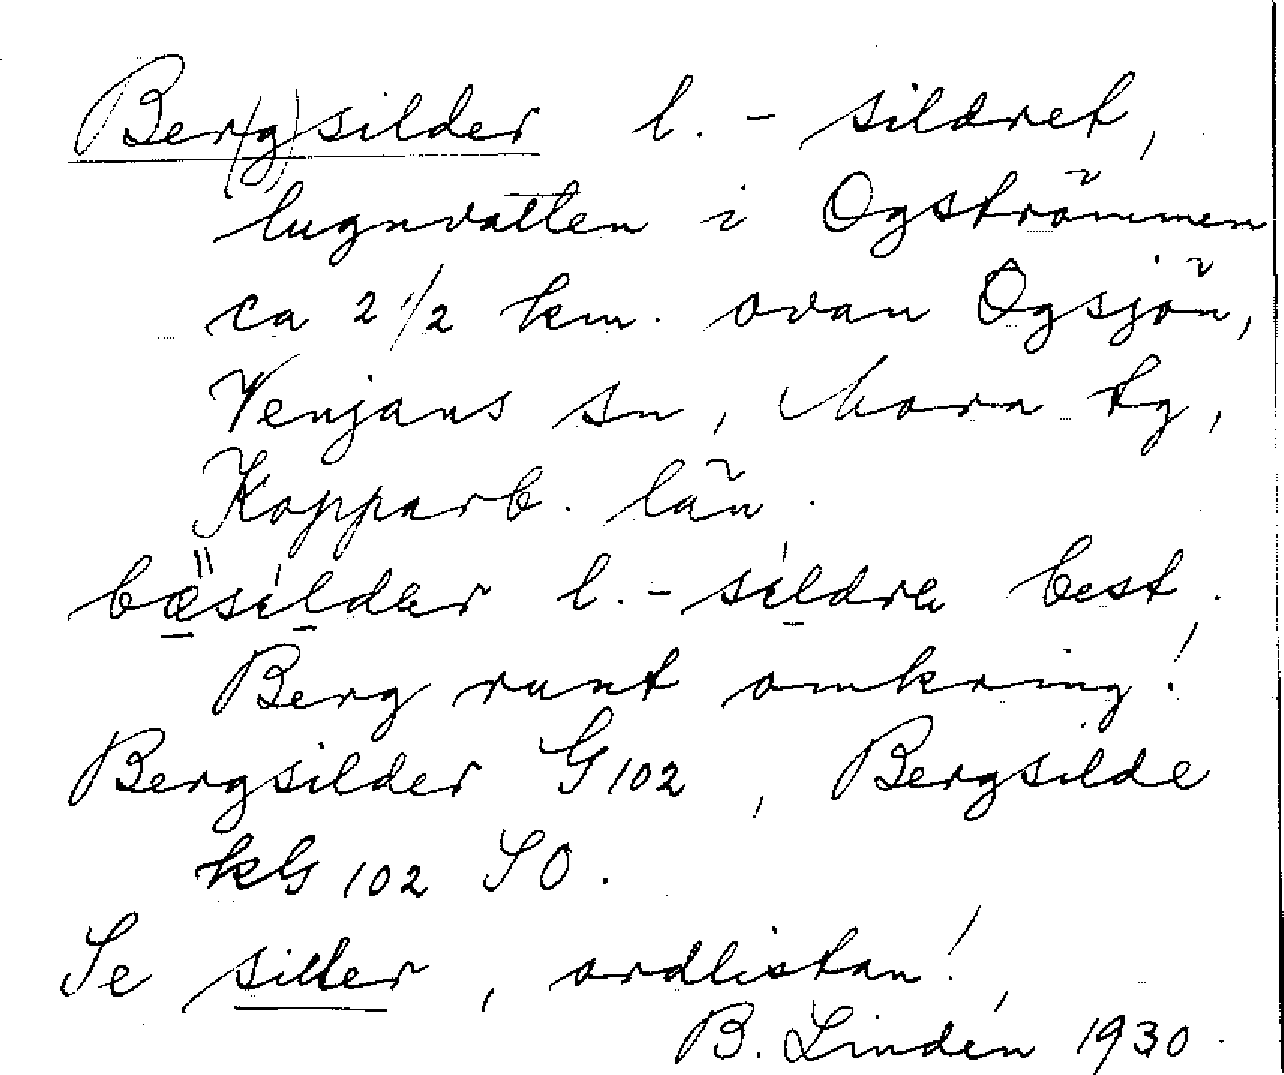 Ber(g)silder l. -sildret,
lugnvatten i Ogströmmen
ca 2 1/2 km. ovan Ogsjön,
Venjans sn, Mora tg,
Kopparb. län.
bæ̈silder l. -sildrɐ best.
Berg runt omkring!
Bergsilder G 102, Bergsilde
kG 102 SO.
Se silder, ordlistan!
B. Lindén 1930.